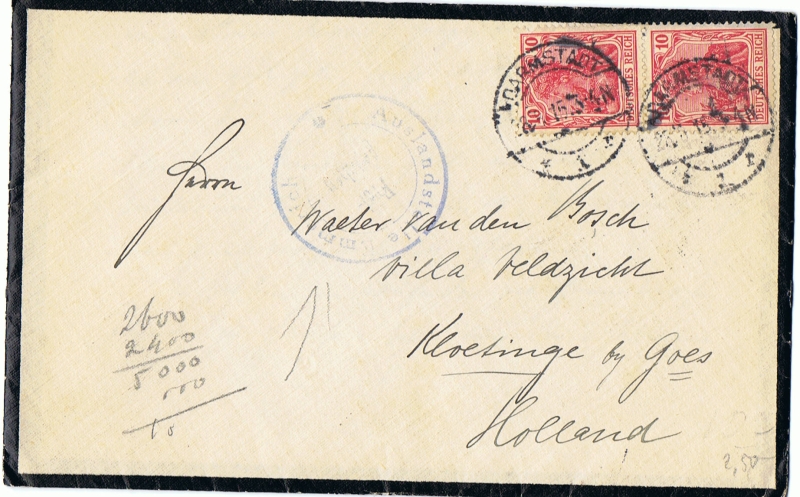 10 10
DEUTSCHES REICH
10 10
DEUTSCHES REICH
DARMSTADT
DARMSTADT
Auslandstelle
Herrn
Walter van den Bosch
Villa Veldzicht
Kloetinge by Goes
Holland
2600
2400
5000
000
10
2,50